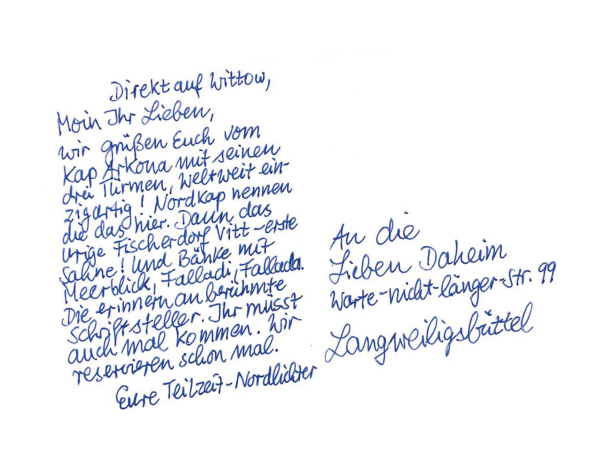 Direkt auf Wittow,
Moin Ihr Lieben,
wir grüßen Euch vom
Kap Arkona mit seinen
drei Türmen, weltweit ein-
zigartig! Nordkap nennen
die das hier. Dann das
urige Fischerdorf Vitt - erste
Sahne! Und Bänke mit
Meerblick, Falladi, Fallada.
Die erinnern an berühmte
Schriftsteller. Ihr müsst
auch mal kommen. Wir
reservieren schon mal.
Eure Teilzeit-Nordlichter
An die
Lieben Daheim
Warte-nicht-länger-Str. 99
Langweiligsbüttel